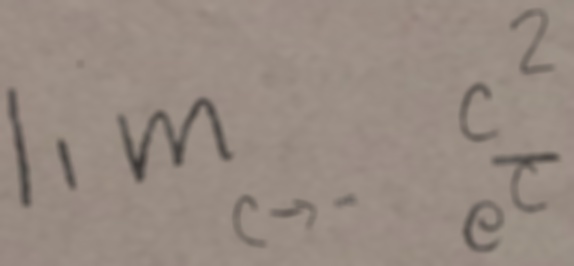 lim c→- c^2/e^c